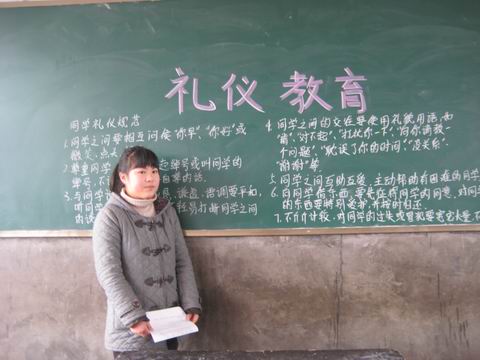 礼仪教育
同学礼仪规范
1.同学之间要相互问候"你早"、"你好"或
微笑、点头
2.尊重同学 起绰号或叫同学的
绰号,不 的话。
3.与同学 谦虚 语调要平和,
听同 轻易打断同学之间
的谈
4.同学之间的交往要使用礼貌用语,如
"请"、"对不起"、"打扰你一下"、"向你请教一
个问题"、"耽误了你的时间"、"没关系"、
"谢谢"等。
5.同学之间互助互爱,主动帮助有困难的同学
6.向同学借东西,要先征得同学的同意,对同学
的东西要特别爱护,并按时归还
7.不斤斤计较,对同学的过失或冒犯要宽宏大量,不